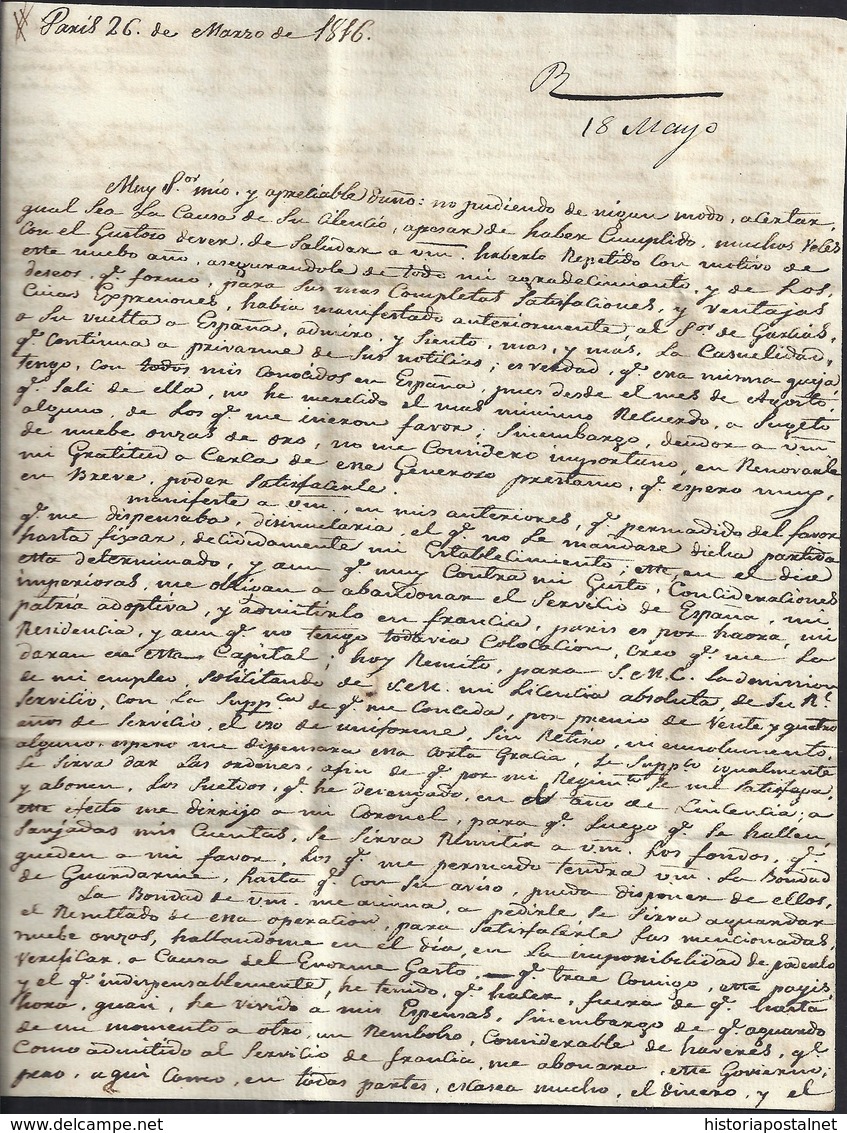 Paris 26. de Marzo de 1816.
R
18 Mayo
Muy S.or mio, y apreciable Dueño: no pudiendo de nigun modo, acertar,
qual sea la Causa de Su cilencio, apesar de haber Cumplido, muchas Veces
con el Gustoso dever, de Saludar a vm. haberlo Repetido con motivo de
este nuebo año, asegurandole de todo mi agradecimiento, y de los,
deseos, q.e formo, para sus mas Completas Satisfaciones, y ventajas
Cuias Expreciones, habia manifestado anteriormente, al S.or de Garcias,
a Su vuelta a España, admiro, y siento, mas, y mas, la Casuelidad,
q.e continua a privarme de Sus noticias; es verdad, q.e esa misma queja
tengo, con todos mis conocidos en España, pues desde el mes de Agosto,
q.e Sali de ella, no he merecido el mas minimo Recuerdo, a Sugeto
alguno, de los q.e me icieron favor; Sinembargo, deudor a vm
de nuebe onzas de oro, no me Considero importuno, en Renovarle
mi Gratitud a Cerca de ese Generoso prestamo, q.e espero muy,
en Breve, poder Satisfacerle.
manifeste a vm., en mis anteriores, q.e persuadido del favor
q.e me dispensaba, disimularia, el q.e no le mandase dicha partida
hasta fixar, decididamente mi Establecimiento; este en el dia
esta determinado, y aun q.e muy Contra mi Gusto, Concideraciones
imperiosas, me obligan a abandonar el Servicio de España, mi
patria adoptiva, y admitirlo en francia, paris es por haora, mi
Residencia, y aun q.e no tengo todavia Colocacion, creo q.e me la
daran en esta Capital; hoy Remito, para S.M.C. la demision
de mi empleo, solicitando de S.M. mi licencia absoluta, de Su R.l
Servicio, con la Supp.ca de q.e me conceda, por premio de Vente y quatro
años de Servicio, el uso de uniforme, sin Retiro, ni emolumento,
alguno, espero me dispensara esta corta Gracia, le Supp.co igualmente
se sirva dar las ordenes, afin de q.e por mi Regim.to se me satisfaga,
y abonen, los Sueldos, q.e he devengado, en el año de Licencia; a
este efecto me dirijo a mi Coronel, para q.e luego q.e se hallen,
Sanjadas mis Cuentas, se sirva Remitir a vm. los fondos, q.e
queden a mi favor, los q.e me persuado tendra vm. la Bondad
de Guardarme, hasta q.e con Su aviso, pueda disponer de ellos,
La Bondad de vm. me anima, a pedirle, se sirva aguardar
el Resultado de esa operacion, para satisfacerle las mencionadas,
nuebe onzas, hallandome en el dia, en la imposibilidad de poderlo
Verificar, a Causa del Enorme Gasto, q.e trae Consigo, este pays,
y el q.e indispensablemente, he tenido, q.e hacer, fuera de q.e hasta
hora, quasi, he vivido a mis Espensas, Sinembargo de q.e aguardo
de un momento a otro, un Rembolso, Considerable de haveres, q.e
Como admitido al Servicio de francia, me abonara, este Govierno;
pero, aqui como, en todas partes, escasea mucho, el Dinero, y el
historiapostalnet